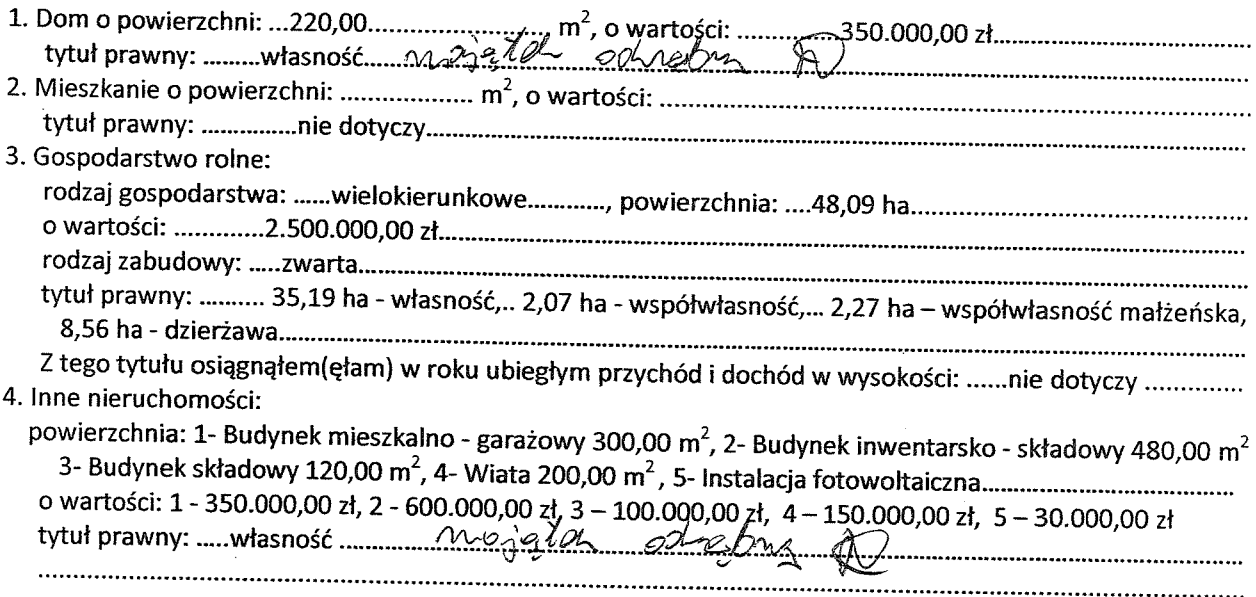 1. Dom o powierzchni: ...220,00........................ m², o wartości: ...............350.000,00 zł.......................................
tytuł prawny: .........własność...... majątek odrębny ..........................................
2. Mieszkanie o powierzchni: ................... m², o wartości: ..........................................................................
tytuł prawny: ...............nie dotyczy..........................................................................
3. Gospodarstwo rolne:
rodzaj gospodarstwa: ......wielokierunkowe............, powierzchnia: ....48,09 ha.................................................
o wartości: .............2.500.000,00 zł..........................................................................
rodzaj zabudowy: .....zwarta..........................................................................
tytuł prawny: .......... 35,19 ha - własność,.. 2,07 ha - współwłasność,... 2,27 ha – współwłasność małżeńska,
8,56 ha - dzierżawa..........................................................................
Z tego tytułu osiągnąłem(ęłam) w roku ubiegłym przychód i dochód w wysokości: ......nie dotyczy ..............
4. Inne nieruchomości:
powierzchnia: 1- Budynek mieszkalno - garażowy 300,00 m², 2- Budynek inwentarsko - składowy 480,00 m²
3- Budynek składowy 120,00 m², 4- Wiata 200,00 m² , 5- Instalacja fotowoltaiczna.....................................
o wartości: 1 - 350.000,00 zł, 2 - 600.000,00 zł, 3 – 100.000,00 zł, 4 – 150.000,00 zł, 5 – 30.000,00 zł
tytuł prawny: .....własność ............ majątek odrębny ..........................................
..........................................................................